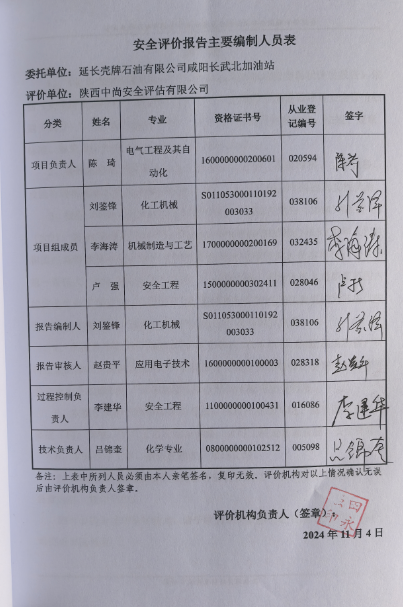 安全评价报告主要编制人员表
委托单位：延长壳牌石油有限公司咸阳长武北加油站
评价单位：陕西中尚安全评估有限公司
分类 姓名 专业 资格证书号 从业登记编号 签字
项目负责人 陈 琦 电气工程及其自动化 1600000000200601 020594
项目组成员 刘鉴锋 化工机械 S011053000110192003033 038106
李海涛 机械制造与工艺 1700000000200169 032435 李海涛
卢 强 安全工程 1500000000302411 028046
报告编制人 刘鉴锋 化工机械 S011053000110192003033 038106
报告审核人 赵贵平 应用电子技术 1600000000100003 028318
过程控制负责人 李建华 安全工程 1100000000100431 016086 李建华
技术负责人 吕锦奎 化学专业 0800000000102512 005098
备注：上表中所列人员必须由本人亲笔签名，复印无效。评价机构对以上情况确认无误
后由评价机构负责人签章。
评价机构负责人（签章）：
2024 年 11 月 4 日